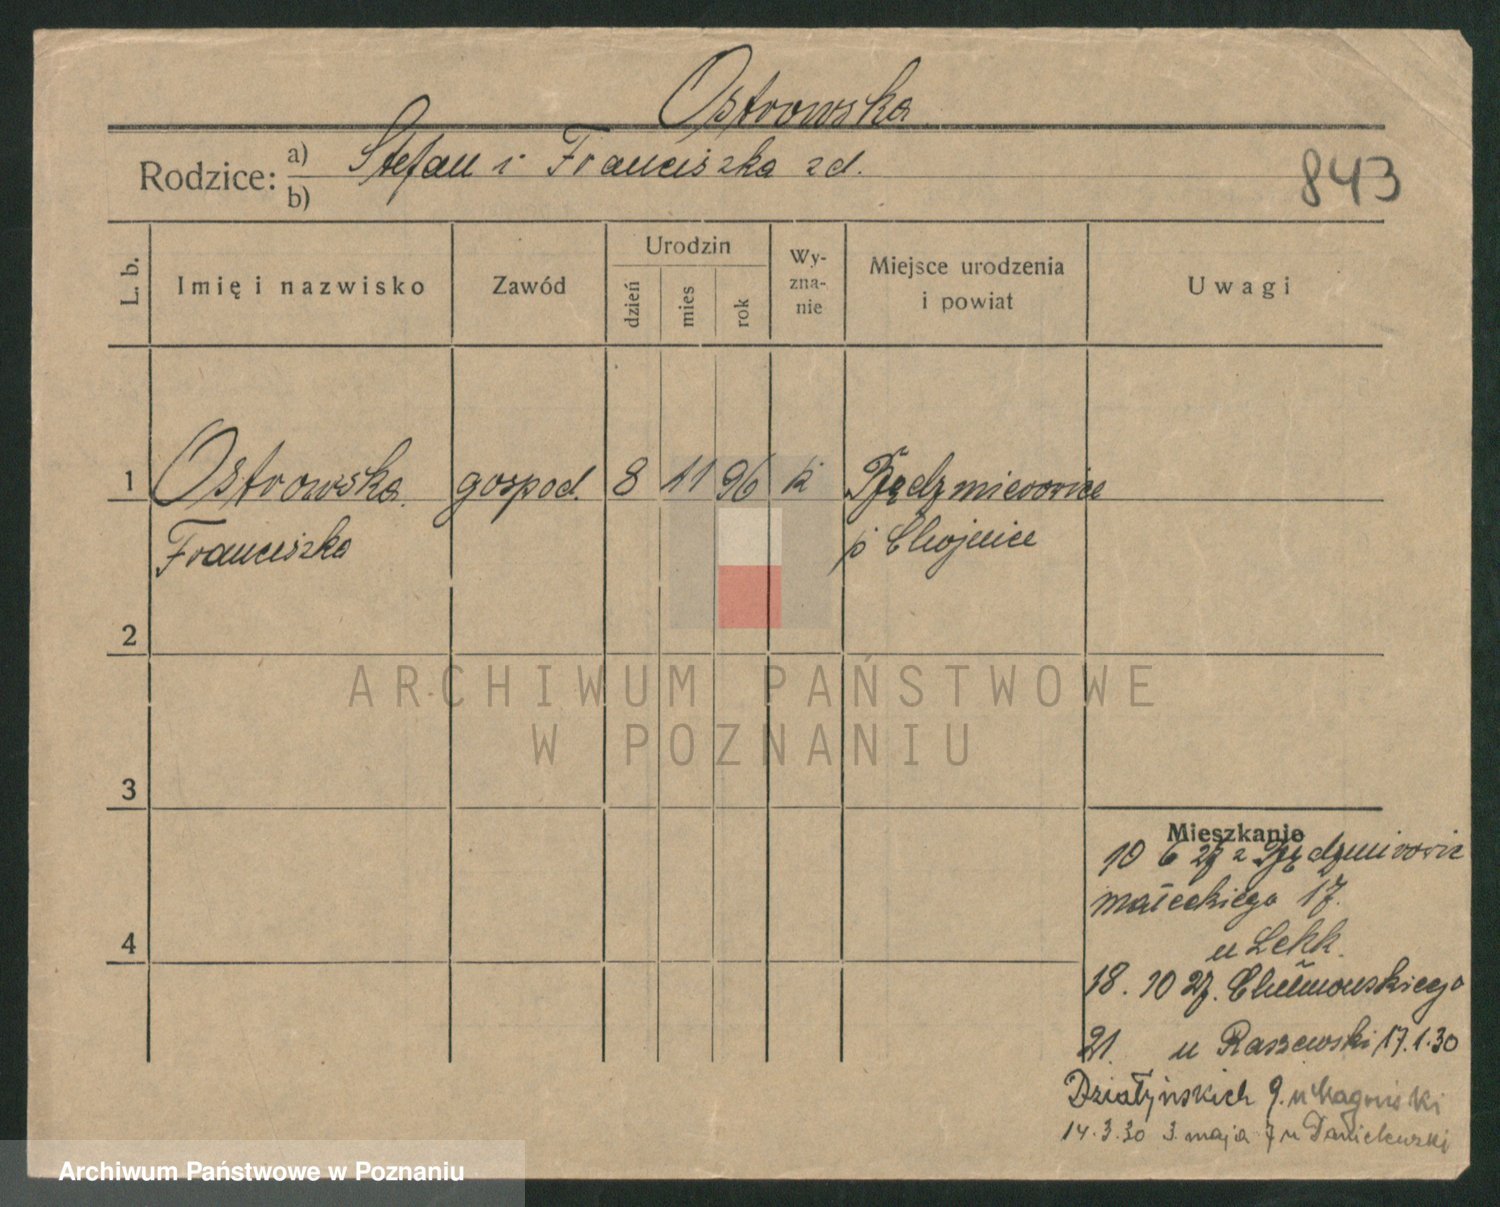 Ostrowska
Rodzice: a) Stefan i Franciszka zd.
b)
843
L. b.
Imię i nazwisko
Zawód
Urodzin
dzień
mies
rok
Wy-
zna-
nie
Miejsce urodzenia
i powiat
Uwagi
1 Ostrowska gospod. 8 11 96 k
Franciszka p Chojnice
2
ARCHIWUM PAŃSTWOWE
W POZNANIU
3
Mieszkanie
10 6 27 z
Małeckiego 17.
4
u
18. 10 27. Chełmońskiego
21. u Raszewski 17.1.30
Działyńskich 9. u
14.3.30 3 maja 7 u Danielewski
Archiwum Państwowe w Poznaniu